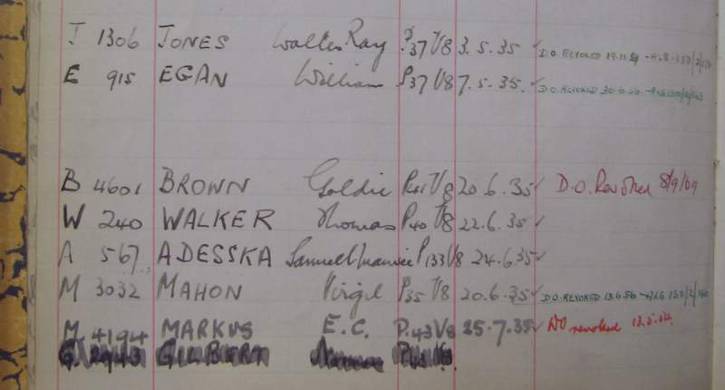 J 1306 JONES Walter Ray P37 V8 3.5.35 D.O. REVOKED
E 915 EGAN William P37 V8 7.5.35. D.O. REVOKED
B 4601 BROWN Goldie P41 V8 20.6.35 D.O. Revoked 8/9/69
W 240 WALKER Thomas P40 V8 22.6.35
A 567 ADESSKA Samuel Maurice P133 V8 24.6.35
M 3032 MAHON Virgil P35 V8 20.6.35 D.O. REVOKED
M 4194 MARKUS E.C. P.43 V8 25.7.35 DO revoked
G. 2943 GILBERT